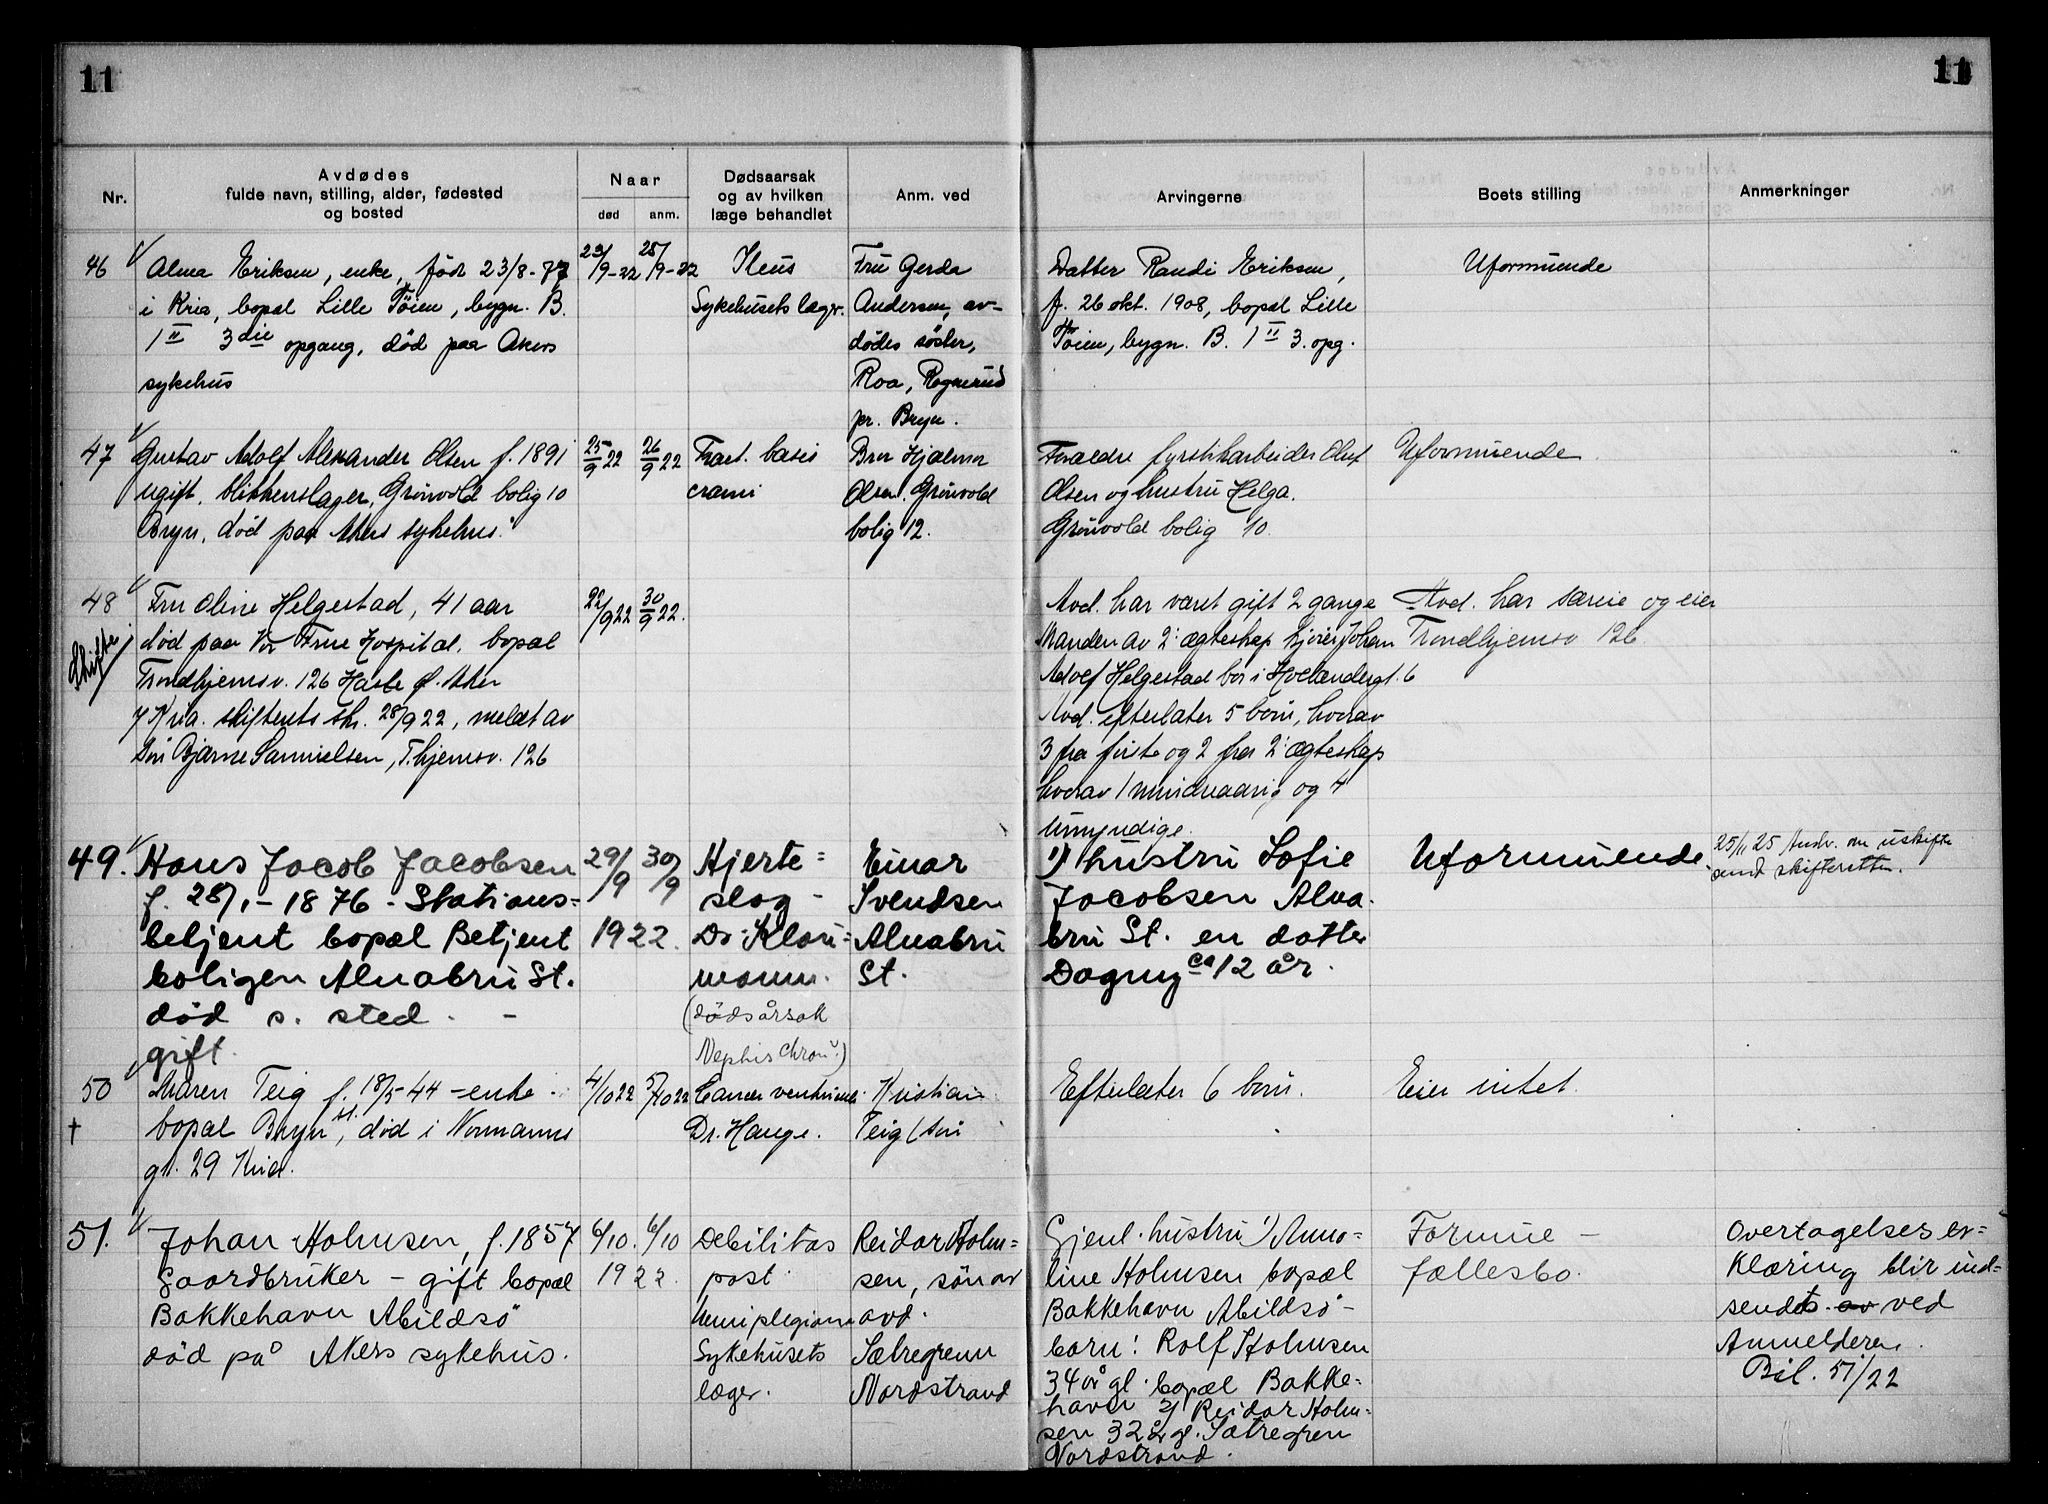 11
11
Nr.
Avdødes
fulde navn, stilling, alder, fødested
og bosted
Naar
død
anm.
Dødsaarsak
og av hvilken
læge behandlet
Anm. ved
Arvingerne
Boets stilling
Anmerkninger
46
Alma Eriksen, enke, född 23/8-77
i Kria, bopal Lille Töien, bygn. B.
1 II 3die opgang, död paa Akers
sykehus
23/9-22
25/9-22
Ileus
Sykehusets læger.
Fru Gerda
Andersen, av-
dödes söster,
Roa, Rognerud
pr. Bryn.
Datter Randi Eriksen,
f. 26 okt. 1908, bopal Lille
Töien, bygn. B. 1 II 3. opg.
Uformuende
47
Gustav Adolf Alexander Olsen f. 1891
ugift, blikkenslager, Grönvold bolig 10
Bryn, död paa Akers sykehus.
25/9 22
26/9 22
Fract. basis
cranii
Bror Hjalmar
Olsen. Grönvold
bolig 12.
Forældre fyrstikarbeider Oluf
Olsen og hustru Helga.
Grönvold bolig 10.
Uformuende
48
Skifte
Fru Oline Helgestad, 41 aar
död paa Vor Frue Hospital. bopal
Trondhjemsv. 126 Hasle Ø. Aker
Kria. skifterets skr. 28/9 22, meldt av
Sön Bjarne Samuelsen, T.hjemsv. 126
22/9 22
30/9 22.
Avd. har været gift 2 gange
Manden av 2. ægteskap Johan
Adolf Helgestad bor i Hollændergt. 6
Avd. efterlater 5 born, hvorav
3 fra första og 2 fra 2. ægteskap
hvorav 1 mindreaarig og 4
umyndige.
Avd. har særeie og eier
Trondhjemsv 126
49.
Hans Jacob Jacobsen
f. 28/1 - 1876 - Stations=
betjent bopæl Betjent
boligen Alnabru St.
död s. sted. -
gift.
29/9
30/9
1922.
Hjerte=
slag -
Dr. Klou=
mann.
(dödsårsak
Nephis chron.)
Einar
Svendsen
Alnabru
St.
1) hustru Sofie
Jacobsen Alna.
bru St. en datter
Dagny ca 12 år.
Uformuende.
25/11 25 Andr. om uskifte
send skifteretten.
50
†
Maren Teig f. 18/5 44 - enke
bopal Bryn st., död i Normanns
gt. 29 Kria.
4/10 22
5/10 22
Cancer ventriculi
Dr. Hauge.
Kristian
Teig (sön
Efterlater 6 born.
Eier intet.
51.
Johan Holmsen, f. 1857
Gaardbruker - gift bopæl
Bakkehavn Abildsö
död på Akers sykehus.
6/10.
6/10
1922.
Debilitas
post
hemiplegiam
Sykehusets
læger.
Reidar Holm=
sen, sön av
avd.
Sætregrenn
Nordstrand
Gjenl. hustru 1) Anno=
line Holmsen bopæl
Bakkehavn Abildsö -
barn: Rolf Holmsen
34 år gl. bopæl Bakke=
havn 2) Reidar Holm=
sen 32 år gl. Sætregren
Nordstrand.
Formue -
fællesbo.
Overtagelseser=
klæring blir ind=
sendts av ved
Anmelderen.
Bil. 51/22